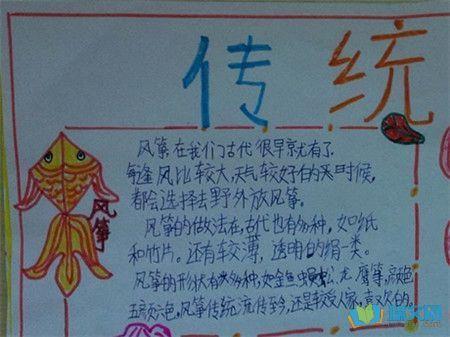 传统
风筝
风筝在我们古代很早就有了.
每逢风比较大,天气较好的时候,
都会选择去野外放风筝。
风筝的做法在,古代也有多种,如纸
和竹片。还有较薄,透明的绢一类。
风筝的形状有多种,如金鱼 龙、鹰等,颜色
五颜六色,风筝传统流传至今,还是较受人家,喜欢的。